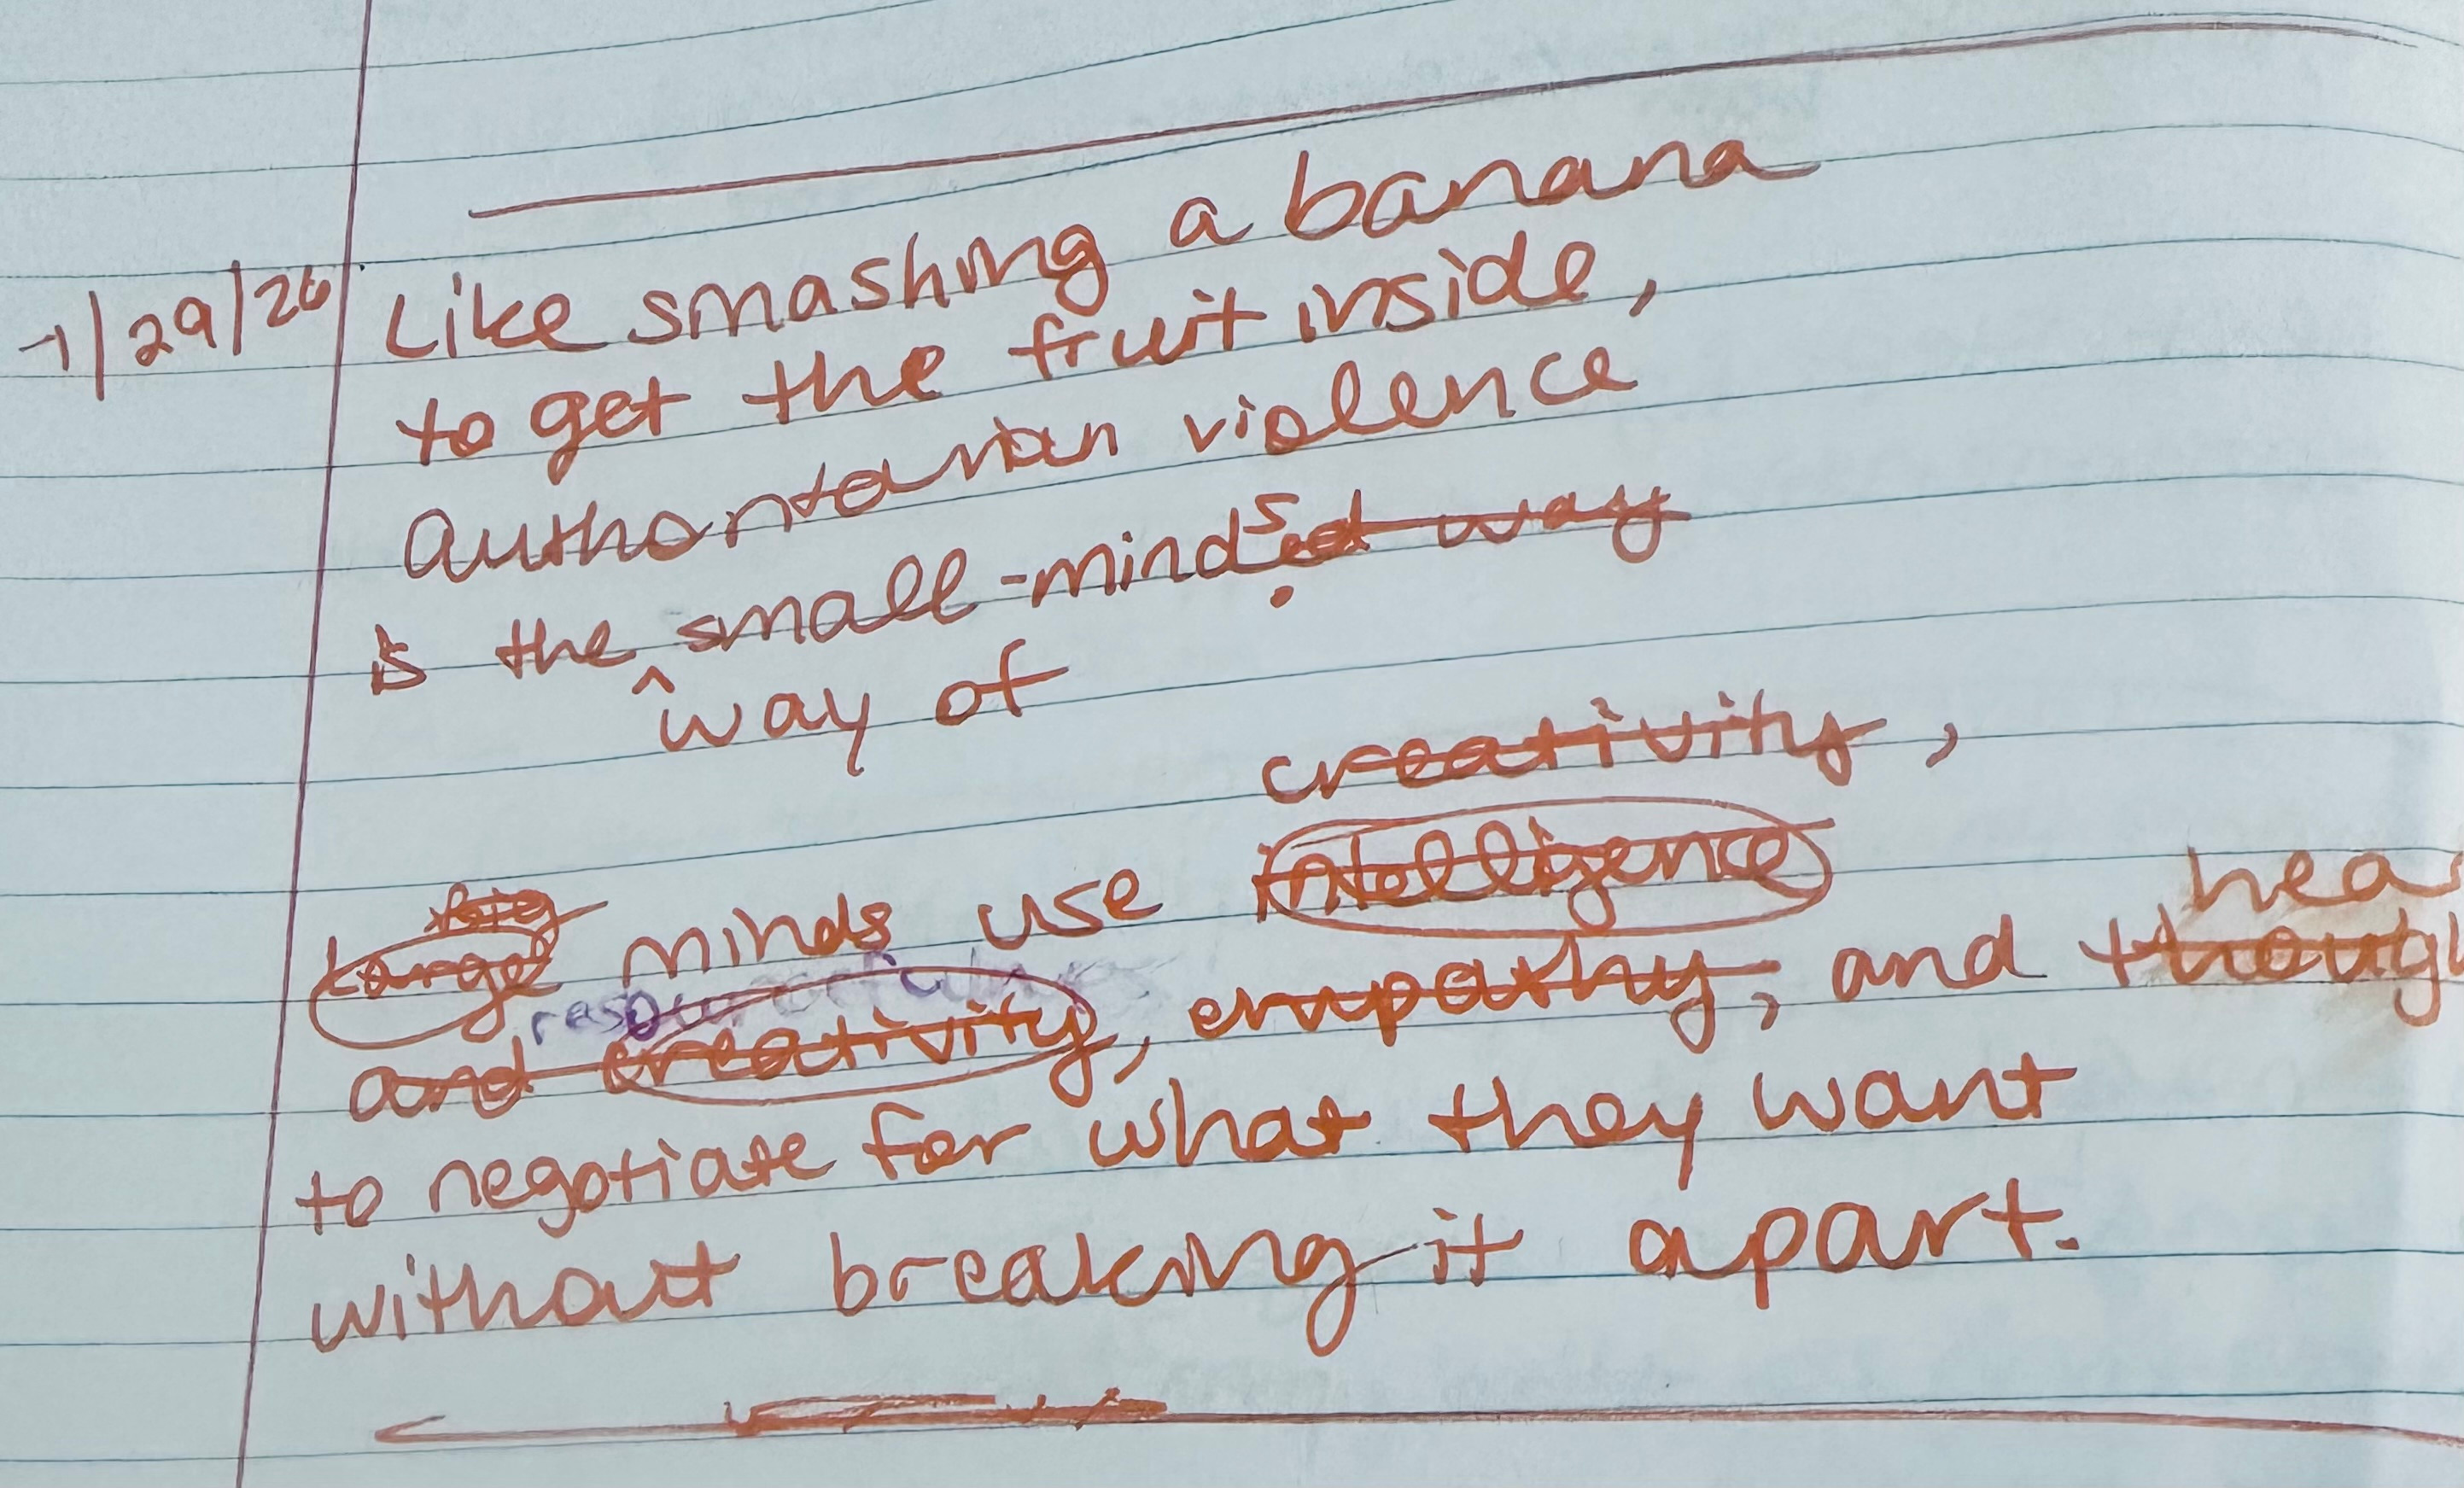 1/29/26 Like smashing a banana
to get the fruit inside,
authoritarian violence
is the small-minds ed way
way of
creativity,
big
intelligence
Large minds use
hea
resourcefulness
and creativity, empathy, and though
to negotiate for what they want
without breaking it apart.